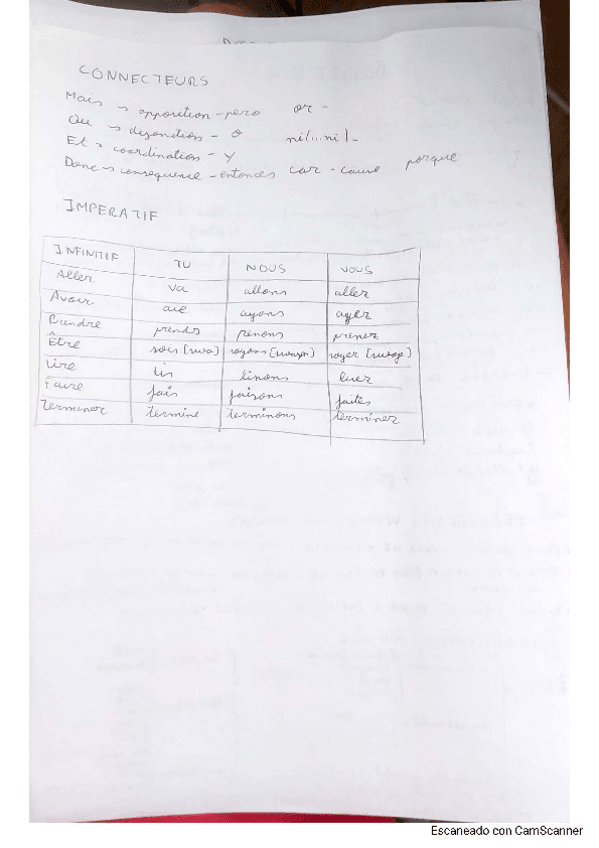 CONNECTEURS
Mais → opposition - pero or -
Ou → disjonction - o ni(...ni)-
Et → coordination - y
Donc → consequence - entonces car - cause porque
IMPERATIF
INFINITIF TU NOUS VOUS
Aller va allons allez
Avoir aie ayons ayez
Prendre prends prenons prenez
Être sois soyons soyez
Lire lis lisons lisez
Faire fais faisons faites
Terminer termine terminons terminez
Escaneado con CamScanner